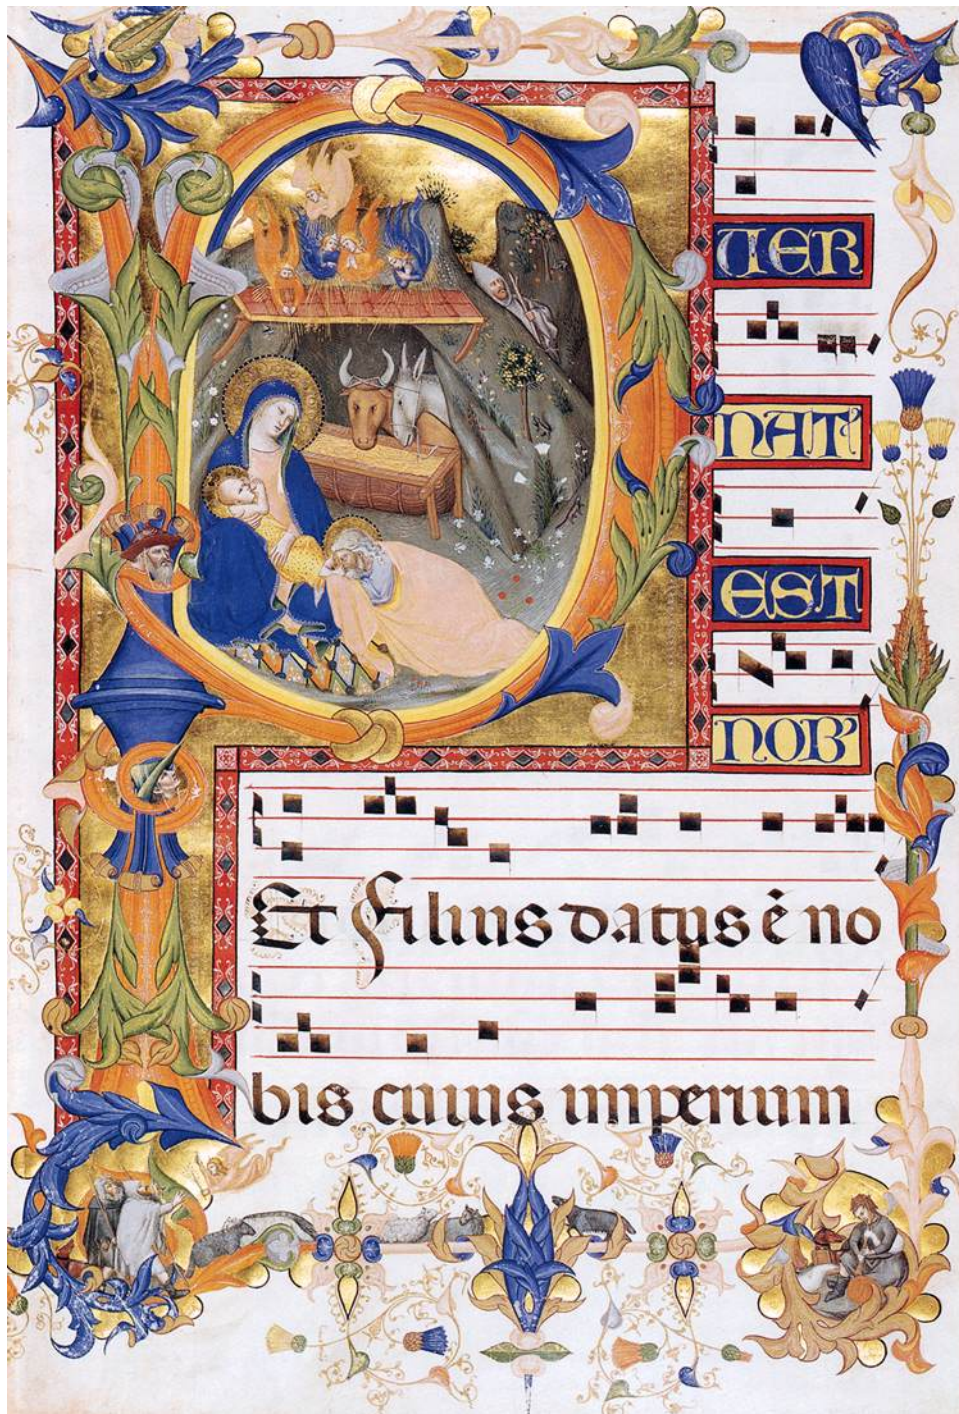 PUER
NAT'
EST
NOB'
Et Filius datus ē no
bis cuius imperium